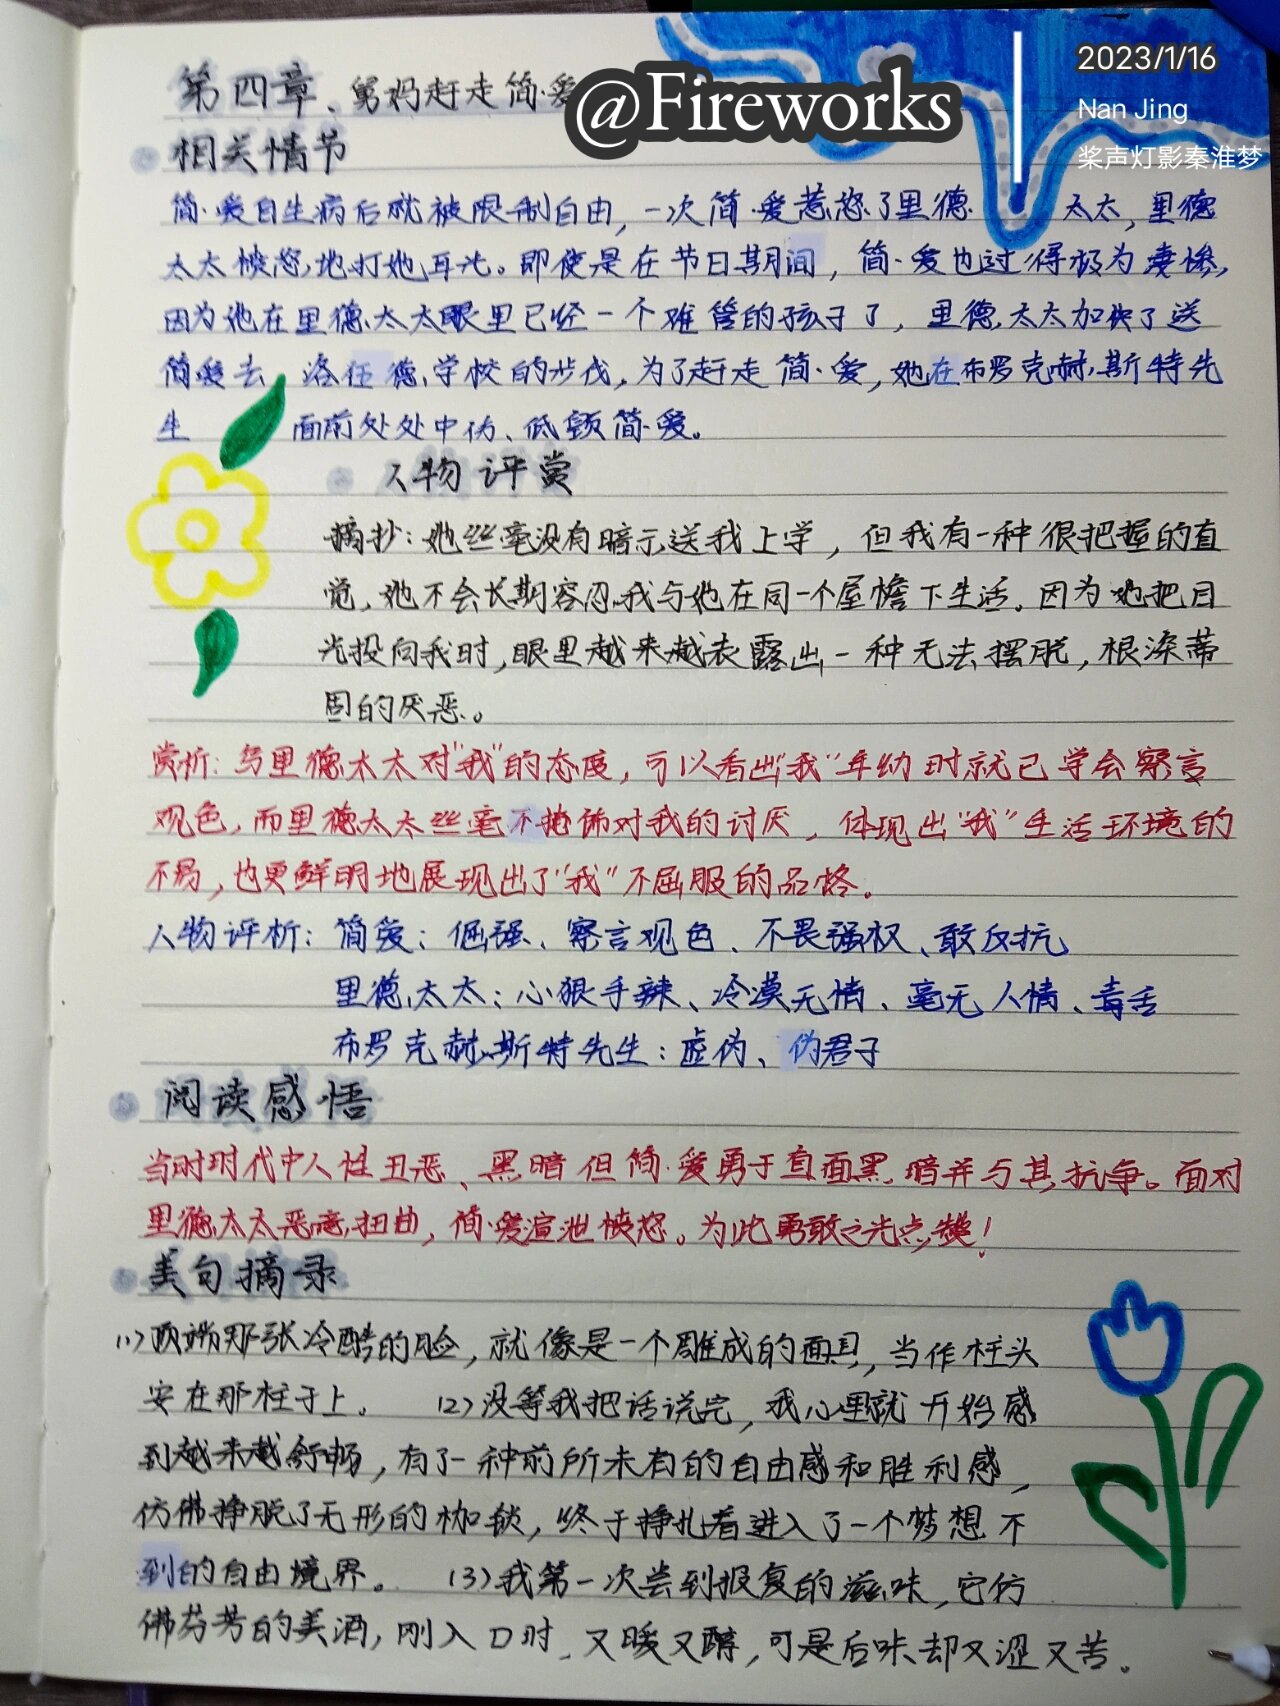 第四章、舅妈赶走简·爱
@Fireworks
2023/1/16
Nan Jing
桨声灯影秦淮梦
相关情节
简·爱自生病后就被限制自由，一次简·爱惹怒了里德 太太，里德
太太愤怒地打她耳光。即使是在节日期间，简·爱也过得极为凄惨，
因为她在里德太太眼里已经一个难管的孩子了，里德太太加快了送
简爱去 洛伍德学校的步伐，为了赶走简·爱，她在布罗克赫斯特先
生 面前处处中伤、低贬简·爱。
人物评赏
摘抄：她丝毫没有暗示送我上学，但我有一种很把握的直
觉，她不会长期容忍我与她在同一个屋檐下生活。因为她把目
光投向我时，眼里越来越表露出一种无法摆脱，根深蒂
固的厌恶。
赏析：写里德太太对“我”的态度，可以看出“我”年幼时就已学会察言
观色，而里德太太丝毫不掩饰对我的讨厌，体现出“我”生活环境的
不易，也更鲜明地展现出了“我”不屈服的品格。
人物评析：简爱：倔强、察言观色、不畏强权、敢反抗
里德太太：心狠手辣、冷漠无情、毫无人情、毒舌
布罗克赫斯特先生：虚伪、伪君子
阅读感悟
当时时代中人性丑恶、黑暗但简·爱勇于直面黑暗并与其抗争。面对
里德太太恶意扭曲，简·爱渲泄愤怒。为此勇敢之光点赞！
美句摘录
(1)顶端那张冷酷的脸，就像是一个雕成的面具，当作柱头
安在那柱子上。 (2)没等我把话说完，我心里就开始感
到越来越舒畅，有了一种前所未有的自由感和胜利感，
仿佛挣脱了无形的枷锁，终于挣扎着进入了一个梦想不
到的自由境界。 (3)我第一次尝到报复的滋味，它仿
佛芬芳的美酒，刚入口时，又暖又醇，可是后味却又涩又苦。